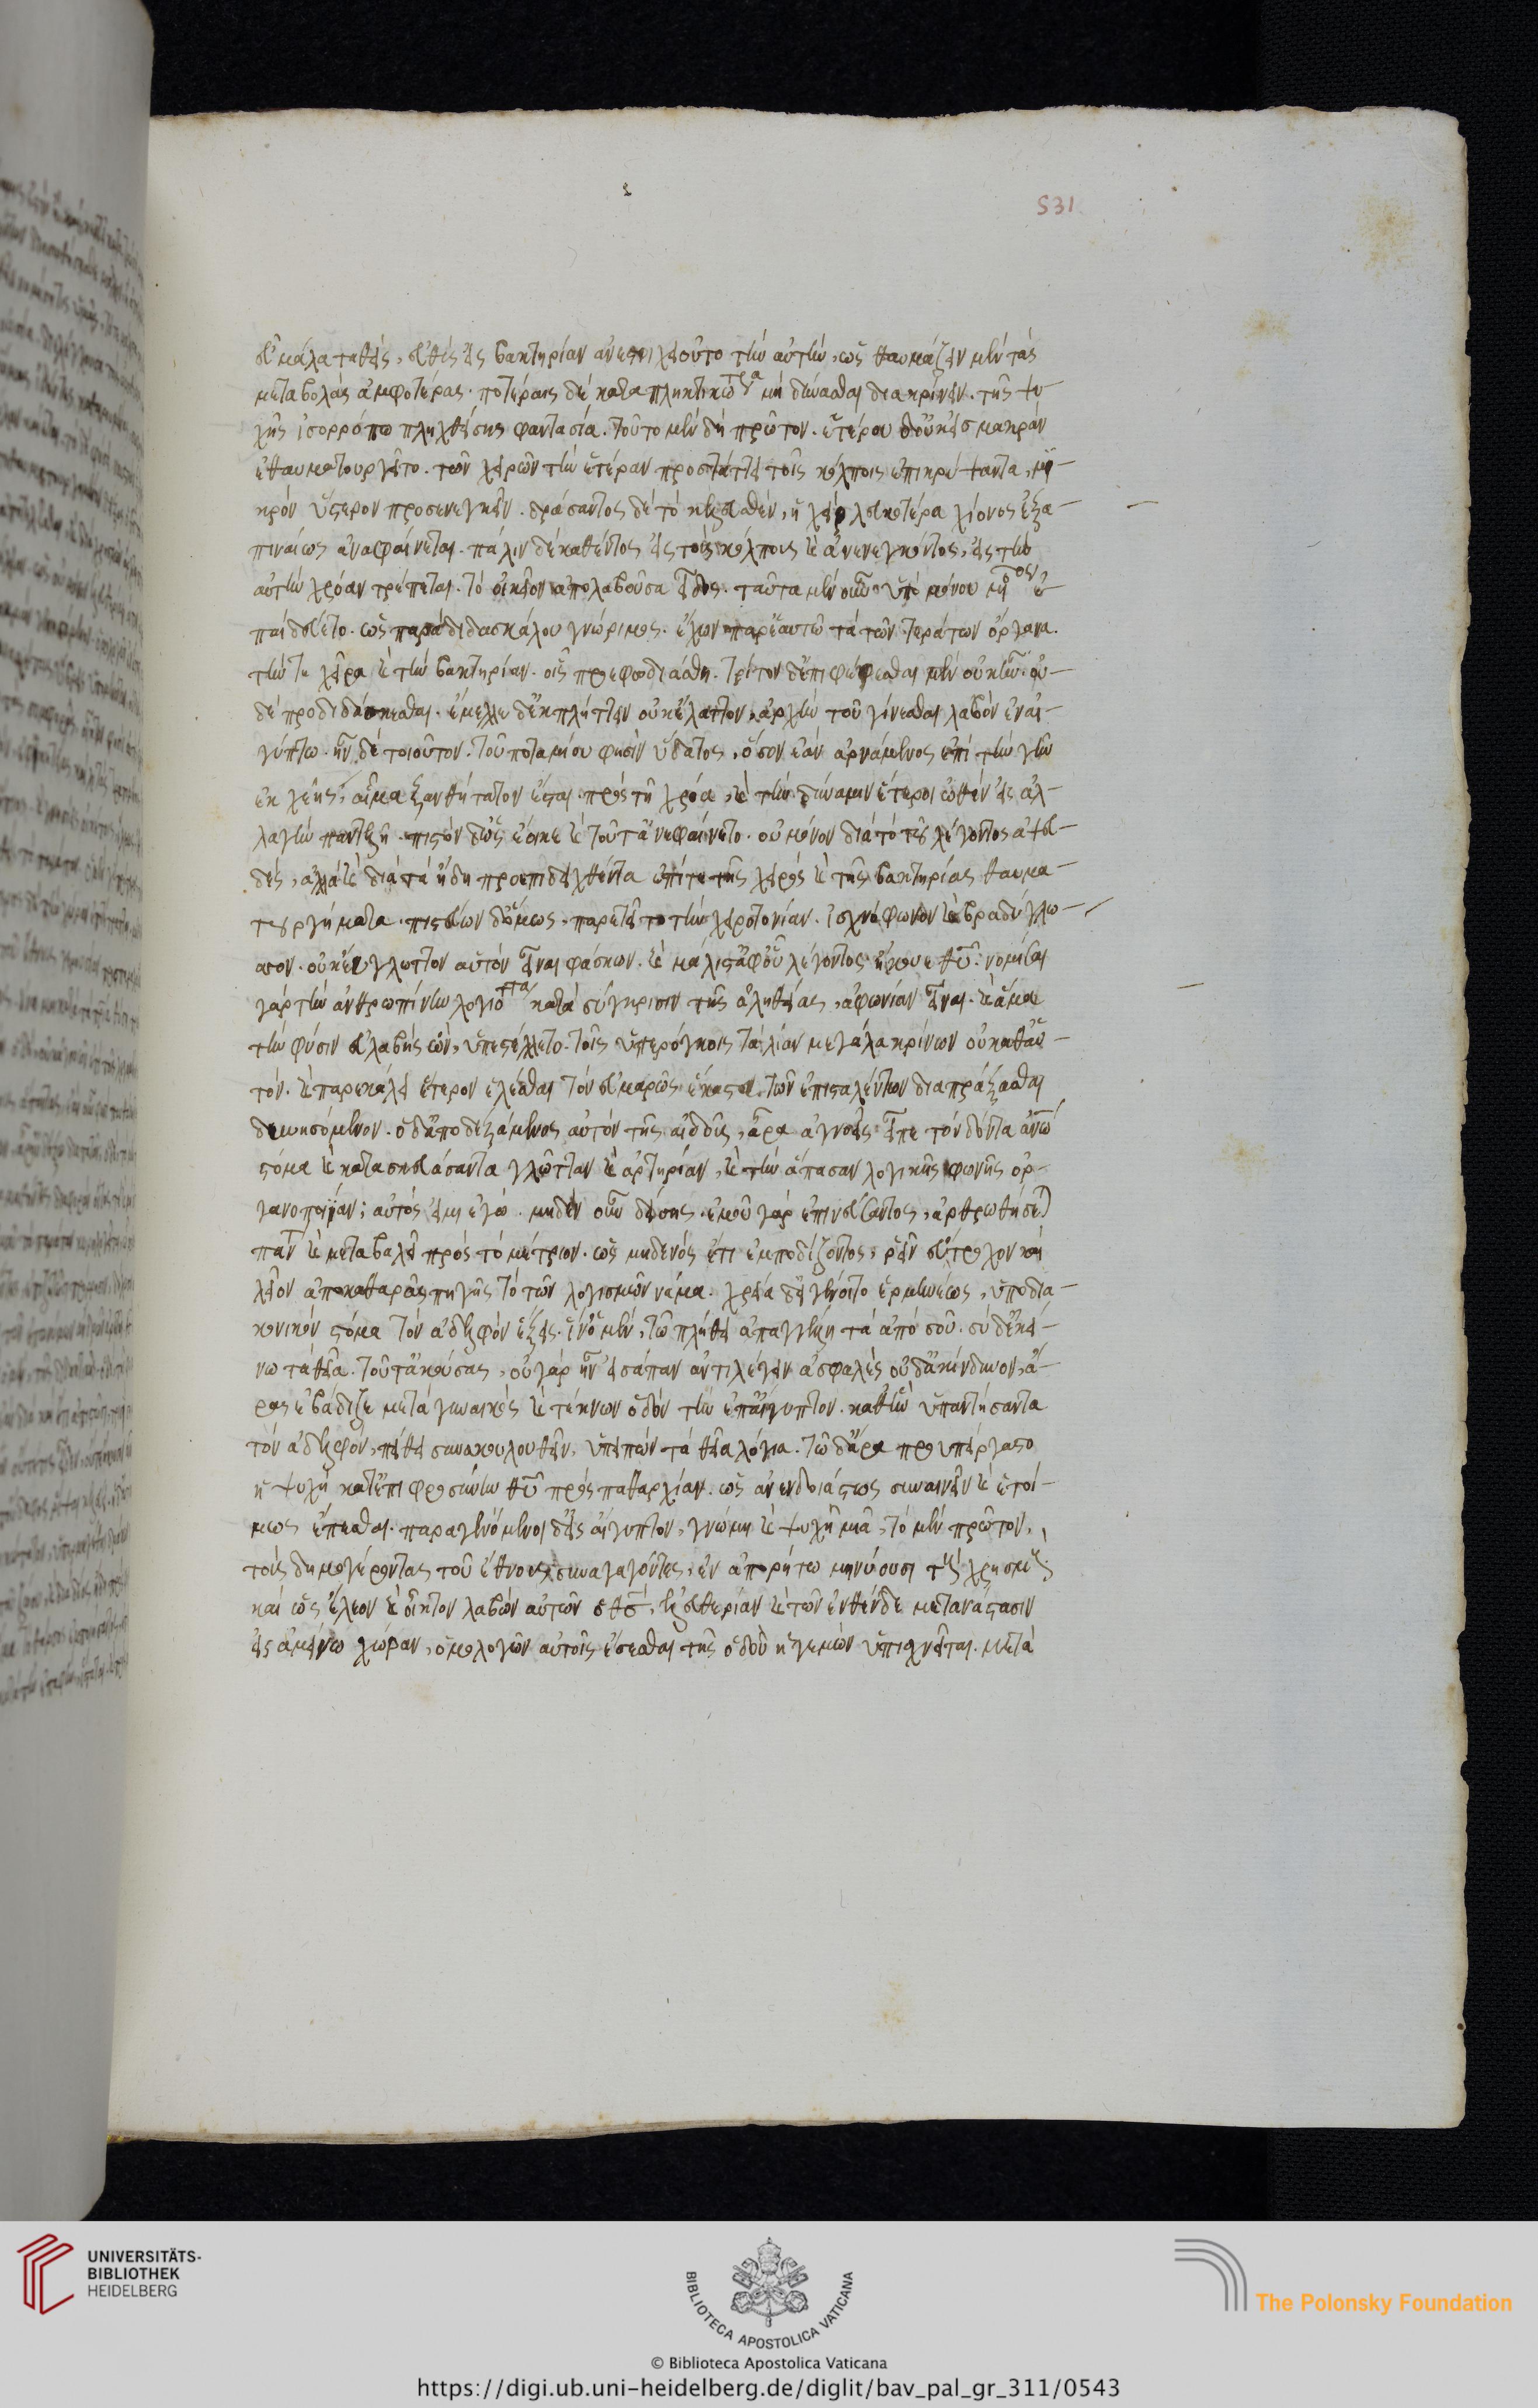 531
εὖ μάλα ταθεὶς, εὐθὺς εἰς βακτηρίαν ἀνεστοιχειοῦτο τὴν αὐτὴν, ὡς θαυμάζειν μὲν τὰς
μεταβολὰς ἀμφοτέρας. ποτέραις δὲ καταπληκτικωτέρα μὴ δύνασθαι διακρίνειν. τῆς ψυ-
χῆς ἰσορρόπω πληχθείσης φαντασία. τοῦτο μὲν δὴ πρῶτον. ἕτερον δ' οὐκ εἰς μακρὰν
ἐθαυματουργεῖτο. τῶν χειρῶν τὴν ἑτέραν προστάττει τοῖς κόλποις ἐπικρύψαντα, μι-
κρὸν ὕστερον προσενεγκεῖν. δράσαντος δὲ τὸ κελευσθὲν, ἡ χεὶρ λευκοτέρα χιόνος ἐξα-
πιναίως ἀναφαίνεται. πάλιν δὲ καθέντος εἰς τοὺς κόλπους καὶ ἀνενεγκόντος, εἰς τὴν
αὐτὴν χρόαν τρέπεται. τὸ οἰκεῖον ἀπολαβοῦσα εἶδος. ταῦτα μὲν οὖν ὑπὸ μόνου μόνος ἐ-
παιδεύετο. ὡς παρὰ διδασκάλου γνώριμος. ἔχων παρ' ἑαυτῶ τὰ τῶν τεράτων ὄργανα.
τήν τε χεῖρα καὶ τὴν βακτηρίαν. οἷς προεφωδιάσθη. τρίτον δ' ἐπιφέρεσθαι μὲν οὐκ ἦν. οὐ-
δὲ προδιδάσκεσθαι. ἔμελλε δ' ἐκπλήττειν οὐκ ἔλαττον, ἀρχὴν τοῦ γίνεσθαι λαβὸν ἐν αἰ-
γύπτω. ἦν δὲ τοιοῦτον. τοῦ ποταμίου φησὶν ὕδατος, ὅσον ἐὰν ἀρυσάμενος ἐπὶ τὴν γῆν
ἐκχέης, αἷμα ξανθότατον ἔσται πρὸς τῆ χρόα, καὶ τὴν δύναμιν ἑτεροιωθὲν εἰς ἀλ-
λαγὴν παντελῆ. πιστὸν δ' ὡς ἔοικε καὶ τοῦτ' ἀνεφαίνετο. οὐ μόνον διὰ τὸ τοῦ λέγοντος ἀψευ-
δὲς, ἀλλὰ καὶ διὰ τὰ ἤδη προεπιδειχθέντα ἐπί τε τῆς χειρὸς καὶ τῆς βακτηρίας θαυμα-
τουργήματα. πιστεύων δ' ὅμως, παρητεῖτο τὴν χειροτονίαν. ἰσχνόφωνον καὶ βραδύγλω-
σσον. οὐκ εὔγλωττον αὑτὸν εἶναι φάσκων. καὶ μάλιστ' ἀφ' οὗ λέγοντος ἤκουε θῦ. νομίσαι
γὰρ τὴν ἀνθρωπίνην λογιότητα κατὰ σύγκρισιν τῆς ἀληθείας, ἀφωνίαν εἶναι. καὶ ἅμα
τὴν φύσιν εὐλαβὴς ὢν, ὑπεστέλλετο. τοῖς ὑπερόγκοις τὰ λίαν μεγάλα κρίνων οὐ καθ' αὑ-
τόν. καὶ παρεκάλει ἕτερον ἑλέσθαι τὸν εὐμαρῶς ἕκαστα τῶν ἐπισταλέντων διαπράξασθαι
δυνησόμενον. ὁ δ' ἀποδεξάμενος αὐτὸν τῆς αἰδοῦς, ἆρα ἀγνοεῖς εἶπε τὸν δόντα ἀνῶ
στόμα καὶ κατασκευάσαντα γλῶτταν καὶ ἀρτηρίαν, καὶ τὴν ἅπασαν λογικῆς φωνῆς ὀρ-
γανοποιΐαν; αὐτός εἰμι ἐγώ. μηδὲν οὖν δείσης. ἐμοῦ γὰρ ἐπινεύσαντος, ἀρθρωθήσεται
πάντα καὶ μεταβαλεῖ πρὸς τὸ μέτριον. ὡς μηδενὸς ἔτι ἐμποδίζοντος, ῥεῖν εὔτροχον καὶ
λεῖον ἀπὸ καθαρᾶς πηγῆς τὸ τῶν λογισμῶν νάμα. χρεία δ' εἰ γένοιτο ἑρμηνέως, ὑποδια-
κονικὸν στόμα τὸν ἀδελφὸν ἕξεις. ἵν' ὁ μὲν, τῶ πλήθει ἀπαγγέλη τὰ ἀπὸ σοῦ. σὺ δ' ἐκεί-
νω τὰ θεῖα. τοῦτ' ἀκούσας, οὐ γὰρ ἦν εἰσάπαν ἀντιλέγειν ἀσφαλὲς οὐδ' ἀκίνδυνον, ἄ-
ρας ἐβάδιζε μετὰ γυναικὸς καὶ τέκνων ὁδὸν τὴν ἐπ' αἴγυπτον. καθ' ἣν ὑπαντήσαντα
τὸν ἀδελφὸν, πείθει συνακολουθεῖν, ὑπειπὼν τὰ θεῖα λόγια. τῶ δ' ἄρα προυπείργαστο
ἡ ψυχὴ κατ' ἐπιφροσύνην θῦ πρὸς πειθαρχίαν. ὡς ἀνενδοιάστως συναινεῖν καὶ ἑτοί-
μως ἕπεσθαι. παραγενόμενοι δ' εἰς αἴγυπτον, γνώμη καὶ ψυχῆ μιᾶ, τὸ μὲν πρῶτον,
τοὺς δημογέροντας τοῦ ἔθνους συναγαγόντες, ἐν ἀπορρήτω μηνύουσι τοὺς χρησμούς.
καὶ ὡς ἔλεον καὶ οἶκτον λαβὼν αὐτῶν ὁ θς, ἐλευθερίαν καὶ τῶν ἐνθένδε μετανάστασιν
εἰς ἀμείνω χώραν, ὁμολογῶν αὐτοῖς ἔσεσθαι τῆς ὁδοῦ ἡγεμὼν ὑπισχνεῖται. μετὰ
UNIVERSITÄTS-
BIBLIOTHEK
HEIDELBERG
BIBLIOTECA APOSTOLICA VATICANA
The Polonsky Foundation
© Biblioteca Apostolica Vaticana
https://digi.ub.uni-heidelberg.de/diglit/bav_pal_gr_311/0543